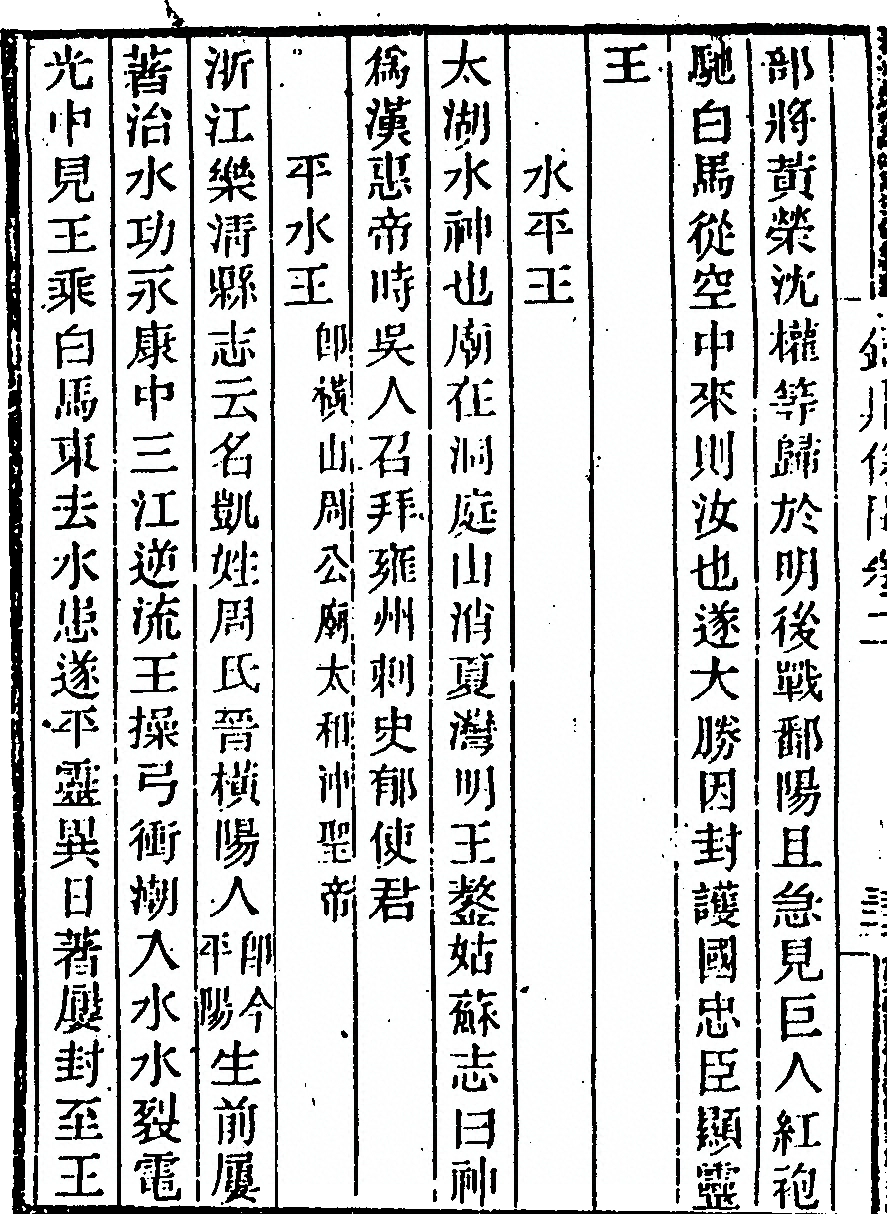 部將黃榮沈權等歸於明後戰鄱陽且急見巨人紅袍
馳白馬從空中來則汝也遂大勝因封護國忠臣顯靈
王
水平王
太湖水神也廟在洞庭山消夏灣明王鏊姑蘇志曰神
爲漢惠帝時吳人召拜雍州刺史郁使君
平水王 卽橫山周公廟太和沖聖帝
浙江樂淸縣志云名凱姓周氏晉橫陽人卽今平陽生前屢
著治水功永康中三江逆流王操弓衝潮入水水裂電
光中見王乘白馬東去水患遂平靈異日著屢封至王